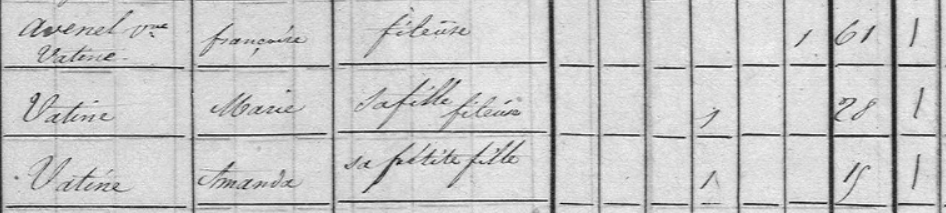 Avenel Vve françoise fileuse 1 61 1
Vatine
Vatine Marie sa fille fileuse 1 28 1
Vatine Amanda sa petite fille 1 15 1